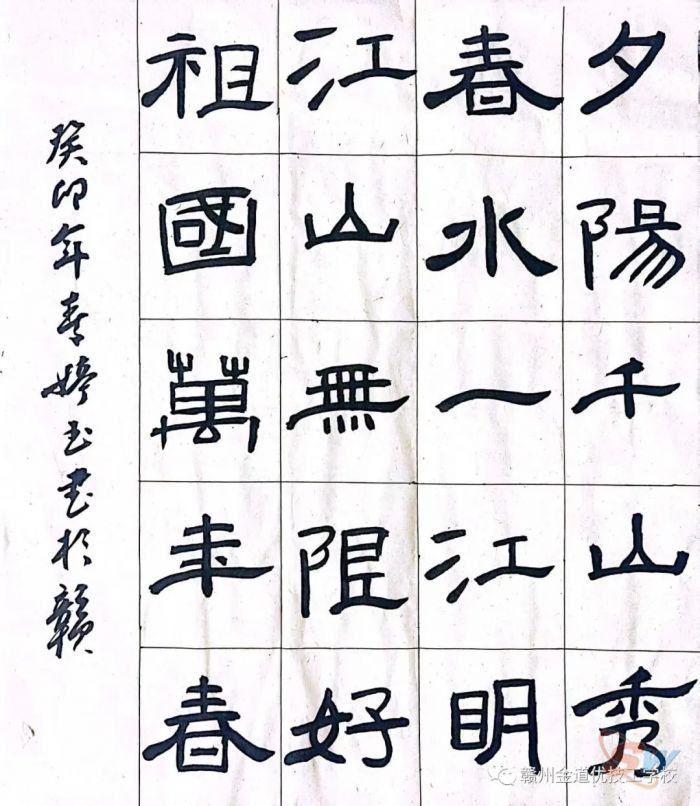 夕陽千山秀
春水一江明
江山無限好
祖國萬年春
癸卯年春婷玉书於贛
赣州金道优技工学校